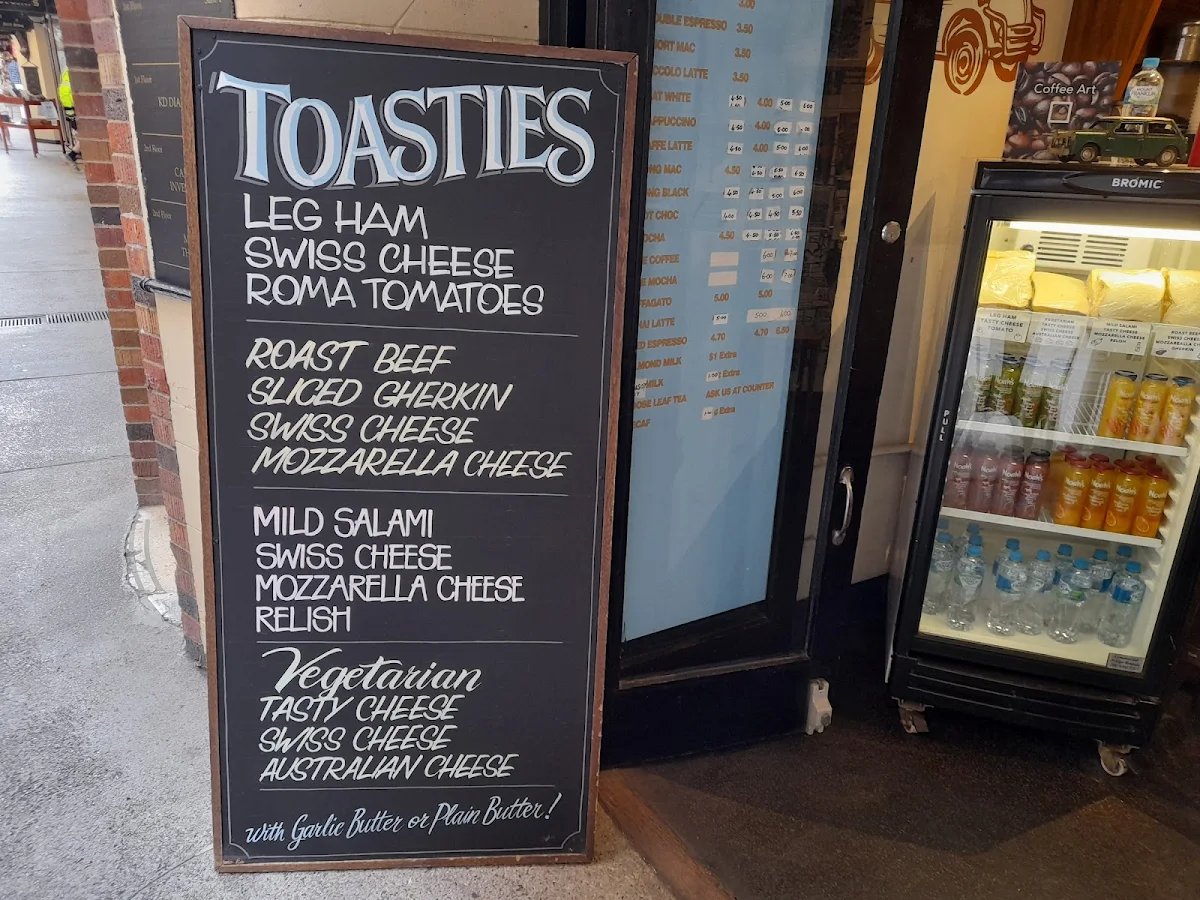 TOASTIES
LEG HAM
SWISS CHEESE
ROMA TOMATOES
ROAST BEEF
SLICED GHERKIN
SWISS CHEESE
MOZZARELLA CHEESE
MILD SALAMI
SWISS CHEESE
MOZZARELLA CHEESE
RELISH
Vegetarian
TASTY CHEESE
SWISS CHEESE
AUSTRALIAN CHEESE
with Garlic Butter or Plain Butter!
1st Floor
KD DIA
2nd Floor
3.00
UBLE ESPRESSO 3.50
ORT MAC 3.50
CCOLO LATTE 3.50
AT WHITE 4.50 4.00 5.00 6.00
APPUCCINO 4.50 4.00
AFFE LATTE 4.00
NG MAC 4.50
NG BLACK
T CHOC
OCHA 4.50
E COFFEE
E MOCHA
FFAGATO 5.00 5.00
AI LATTE 5.00 6.00
D ESPRESSO 4.70 4.70 6.50
MOND MILK $1 Extra
MILK Extra
OSE LEAF TEA ASK US AT COUNTER
CAF Extra
Coffee Art
BROMIC
LEG HAM
TASTY CHEESE
TOMATO
VEGETARIAN
TASTY CHEESE
SWISS CHEESE
MILD SALAMI
TASTY CHEESE
MOZZARELLA CHEESE
RELISH
ROAST BE
SWISS CHEE
MOZZARELLA CHE
GHERKIN
PULL
Noah's
Noah's
Noah's
Noah's